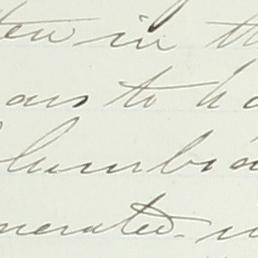 ten in th
ous to ha
olumbia
nerated. in